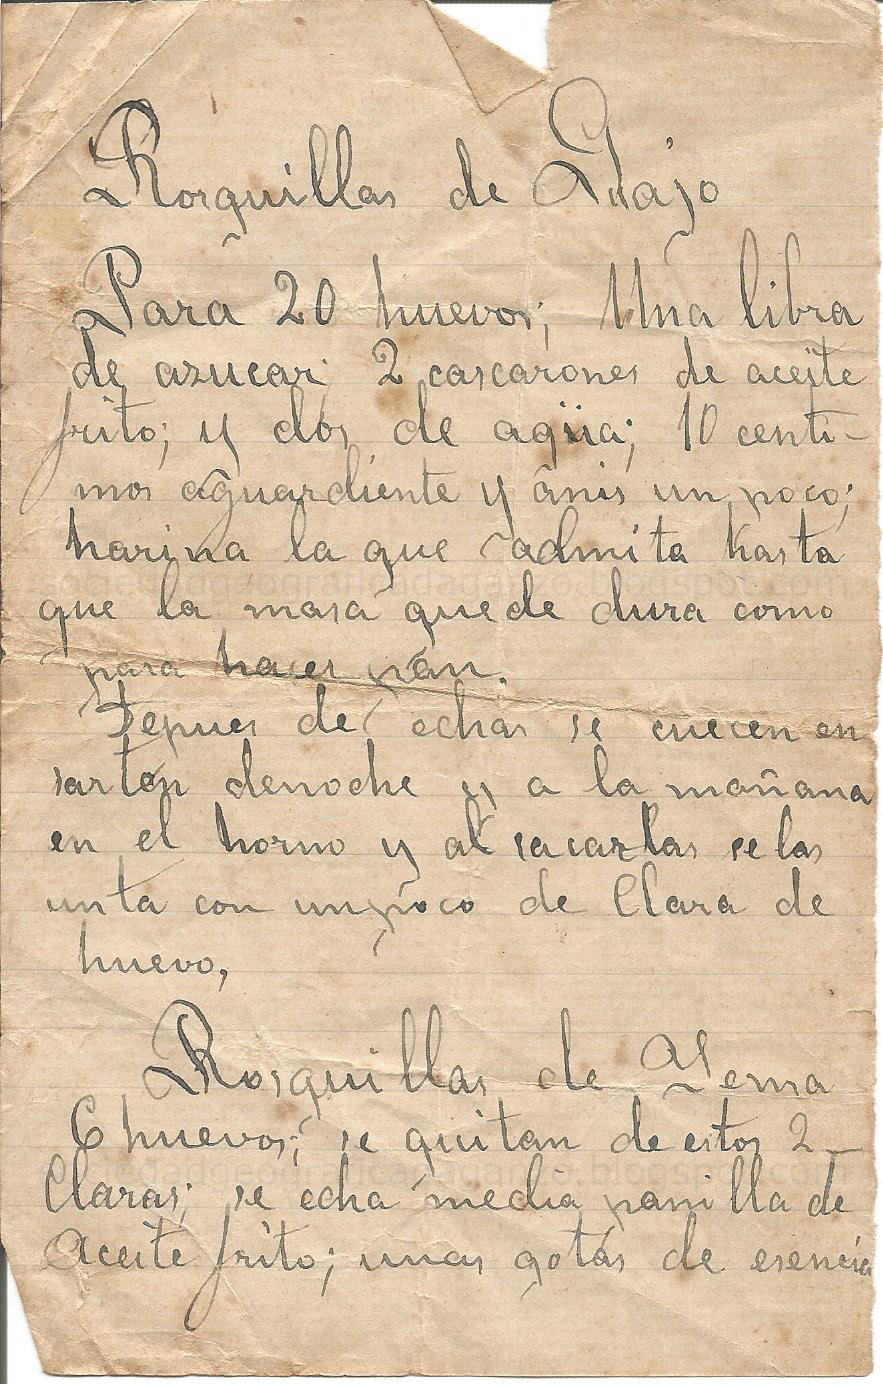 Rosquillas de Guajo
Para 20 huevos; Una libra
de azucar 2 cascarones de aceite
frito; y dos de agua; 10 centi-
mos aguardiente y anis un poco;
harina la que admita hasta
que la masa quede dura como
para hacer pan.
Depues de echas se cuecen en
sartén denoche y a la mañana
en el horno y al sacarlas se las
unta con un poco de Clara de
huevo,
Rosquillas de Yema
6 huevos; se quitan de estos 2
Claras; se echa media panilla de
Aceite frito; unas gotas de esencia